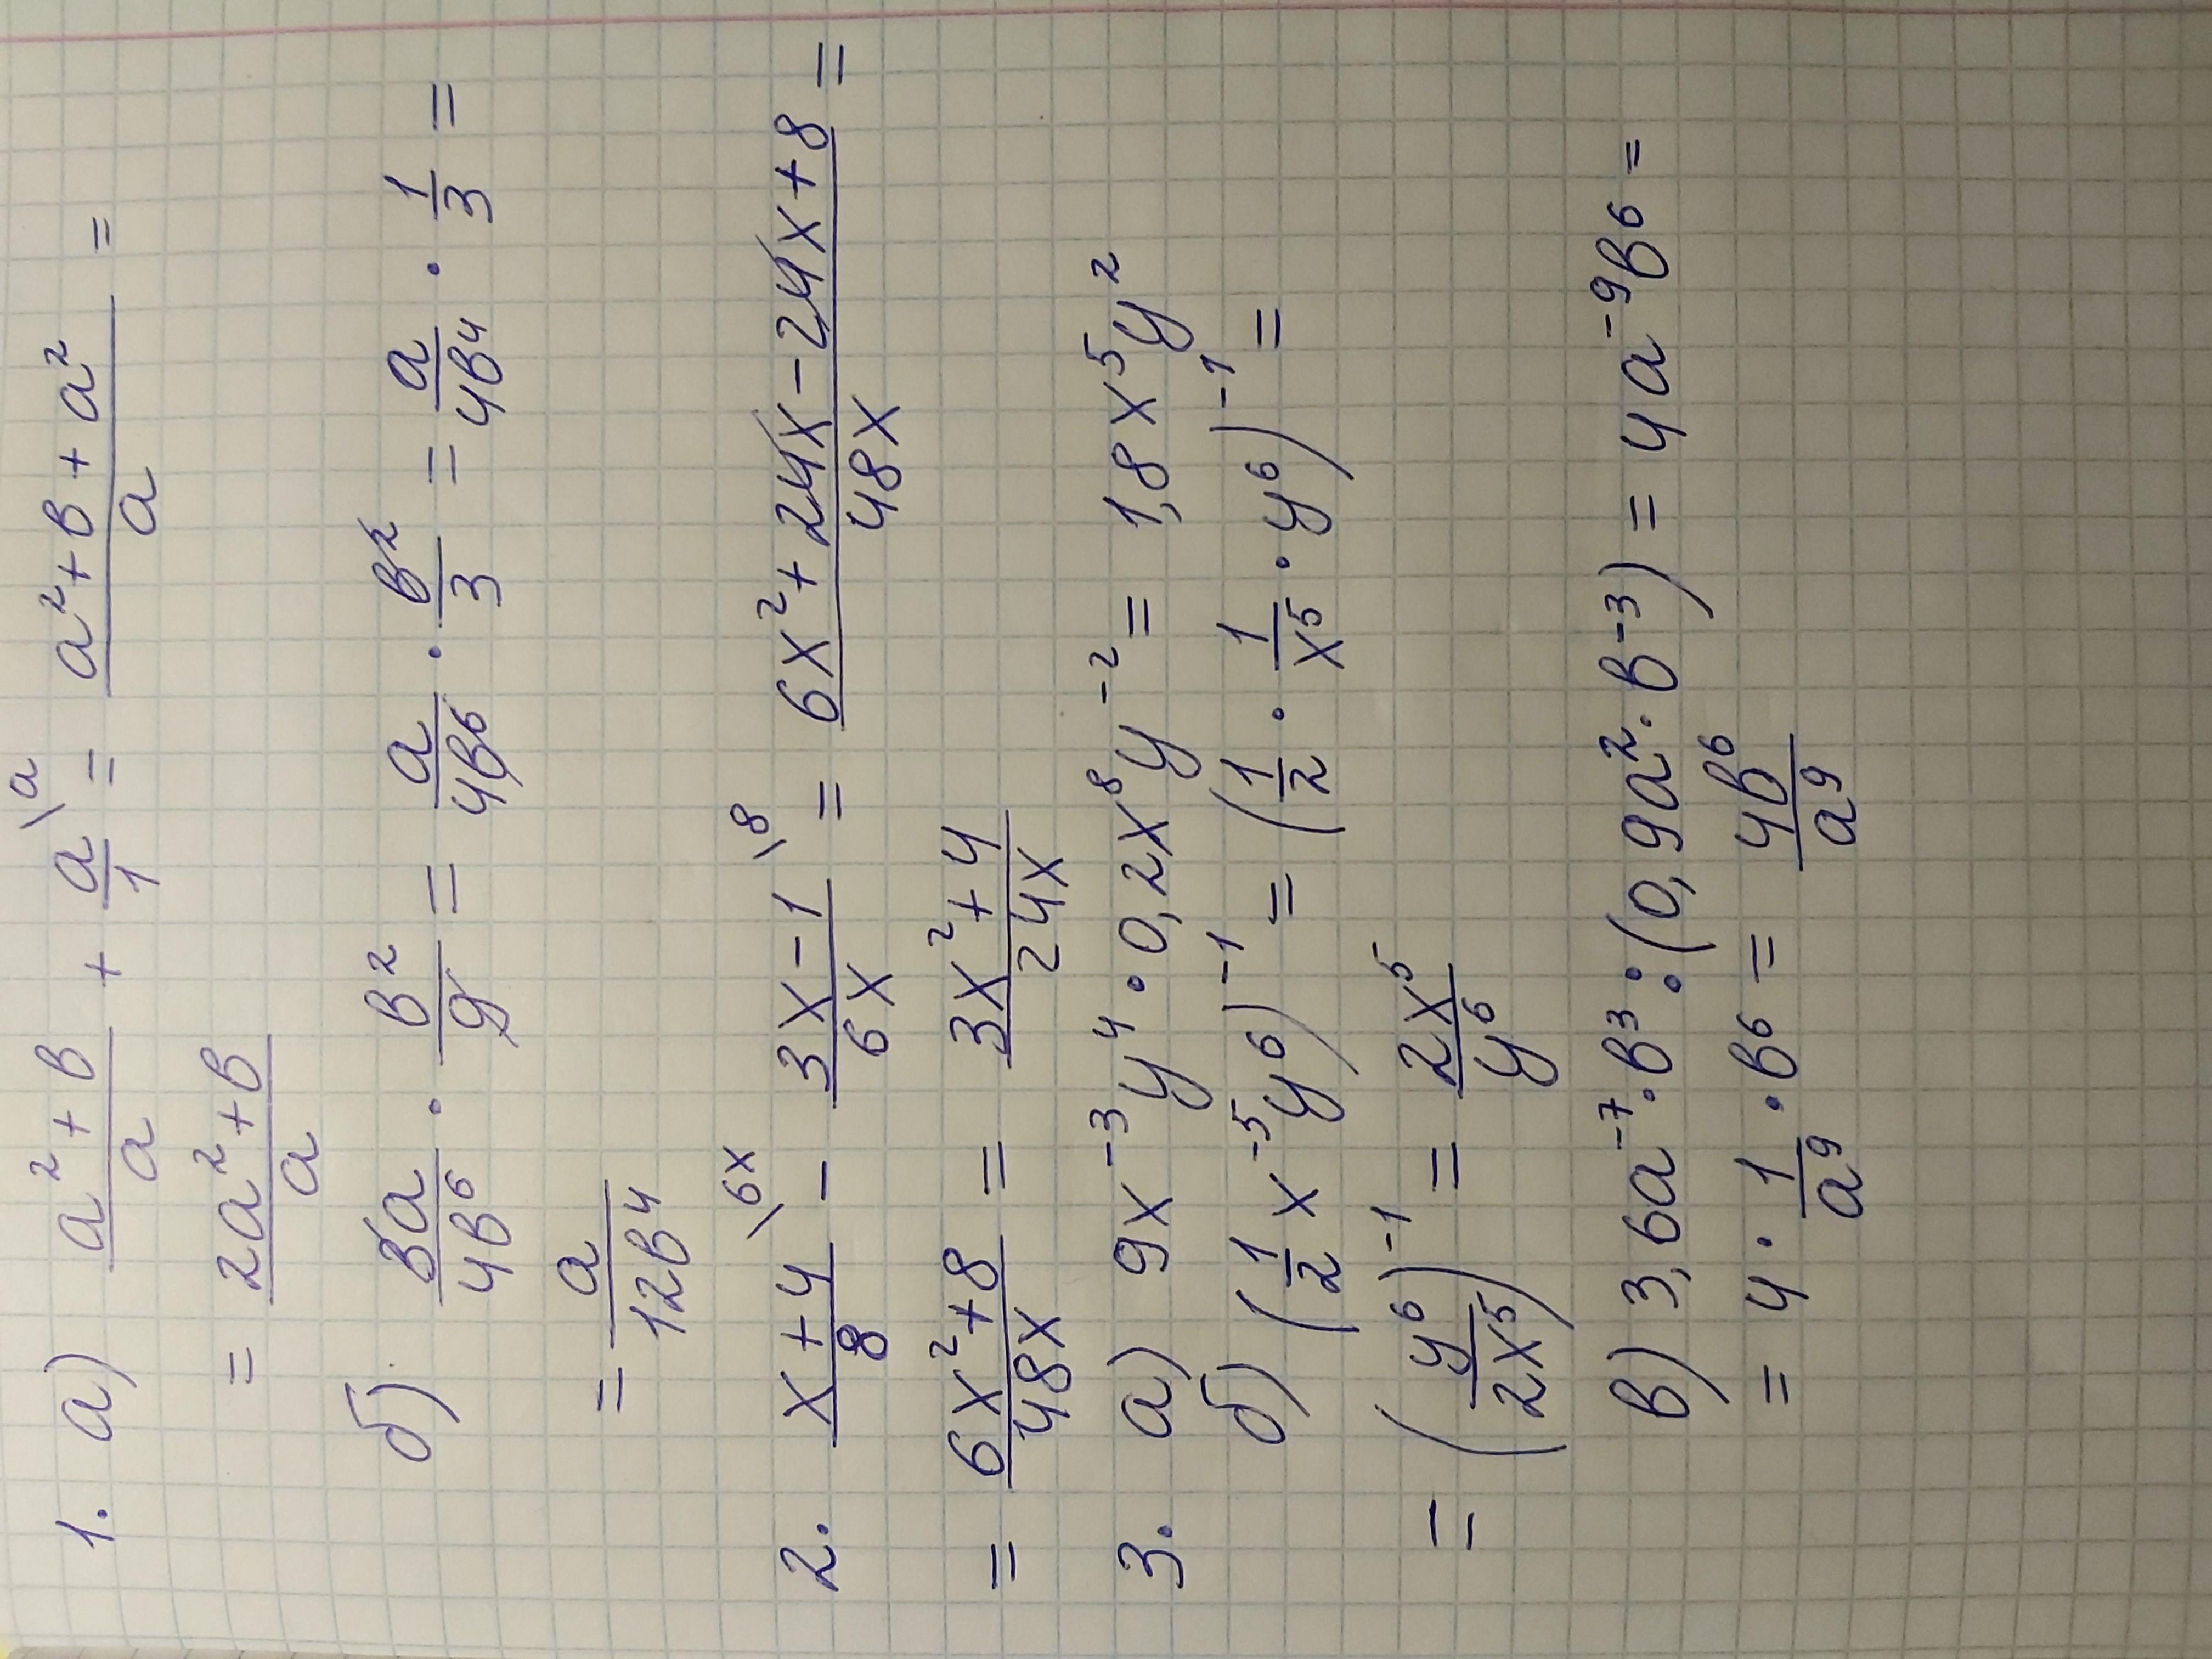 1. а) \frac{a^2+b}{a} + \frac{a}{1}^{\a} = \frac{a^2+b+a^2}{a} =
= \frac{2a^2+b}{a}
б) \frac{3a}{4b^6} · \frac{b^2}{9} = \frac{a}{4b^6} · \frac{b^2}{3} = \frac{a}{4b^4} · \frac{1}{3} =
= \frac{a}{12b^4}
2. \frac{x+4}{8}^{\6x} - \frac{3x-1}{6x}^{\8} = \frac{6x^2+24x-24x+8}{48x} =
= \frac{6x^2+8}{48x} = \frac{3x^2+4}{24x}
3. а) 9x^{-3}y^4 · 0,2x^8y^{-2} = 1,8x^5y^2
б) (\frac{1}{2}x^{-5}y^6)^{-1} = (\frac{1}{2} · \frac{1}{x^5} · y^6)^{-1} =
= (\frac{y^6}{2x^5})^{-1} = \frac{2x^5}{y^6}
в) 3,6a^{-7} · b^3 : (0,9a^2 · b^{-3}) = 4a^{-9}b^6 =
= 4 · \frac{1}{a^9} · b^6 = \frac{4b^6}{a^9}